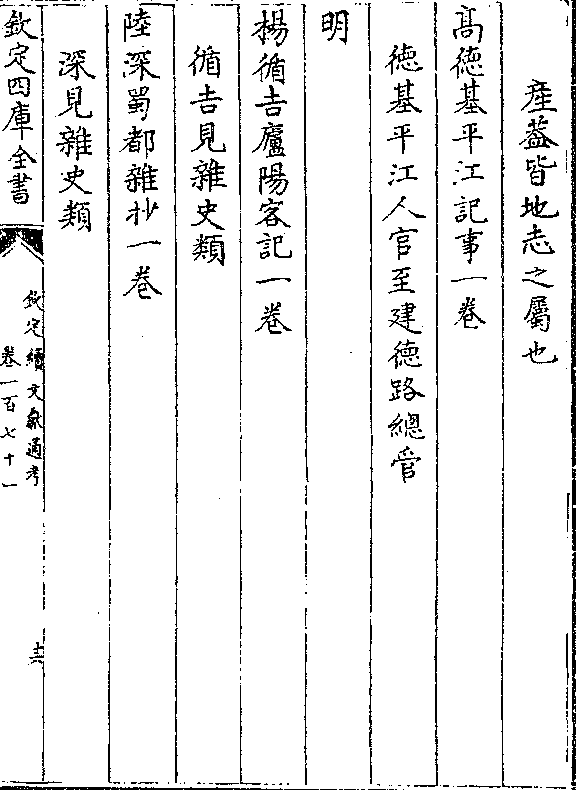 産葢皆地志之屬也
髙徳基平江記事一卷
徳基平江人官至建德路總管
明
楊循吉廬陽客記一卷
循吉見雜史類
陸深蜀都雜抄一卷
深見雜史類
欽定四庫全書
欽定續文獻通考
卷一百七十一
十六